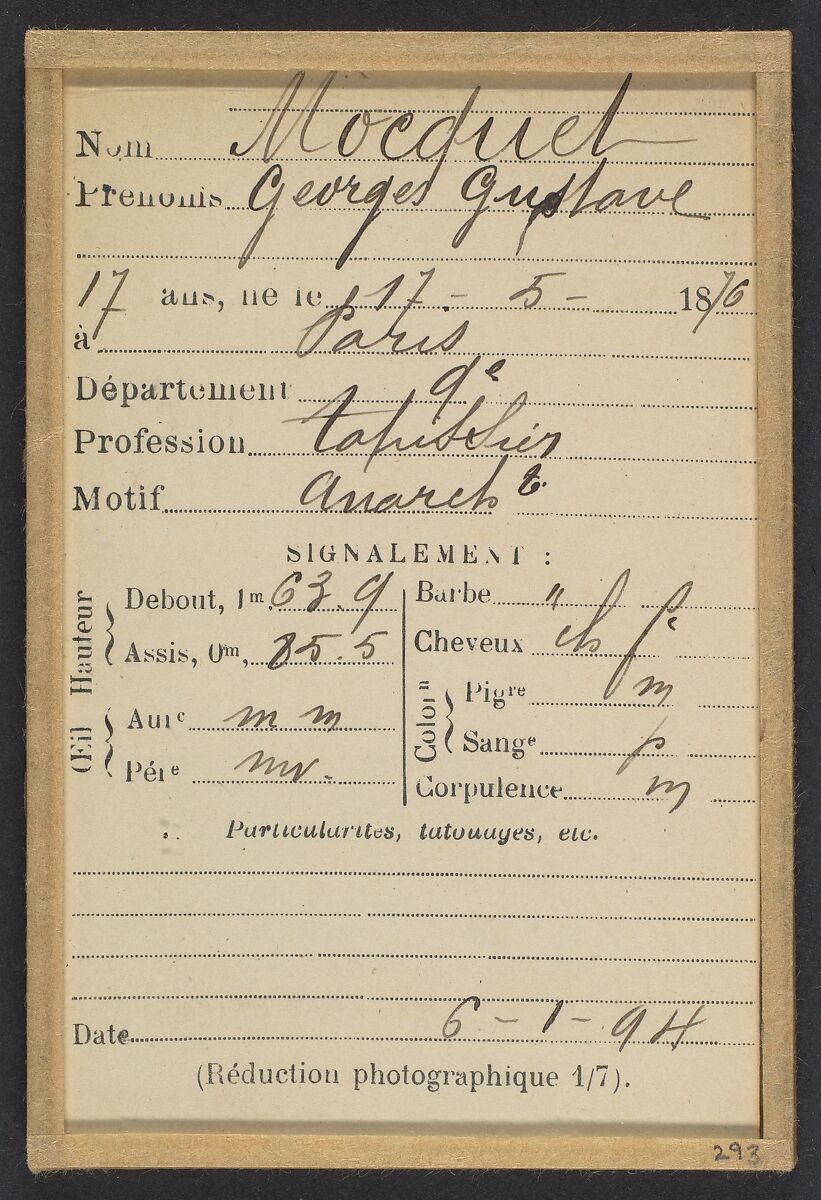 Nom Mocquet
Prénoms Georges Gustave
17 ans, né le 17 - 5 - 1876
à Paris
Département de
Profession tapissier
Motif Anarch te.
SIGNALEMENT :
Hauteur
Debout, 1m. 63.9
Assis, 0m, 85.5
Œil
Aule m m
Péle mv.
Barbe "
Cheveux ch fe
Colorn
Pigre m
Sange p
Corpulence m
Particularités, tatouages, etc.
Date 6 - 1 - 94
(Réduction photographique 1/7).
293